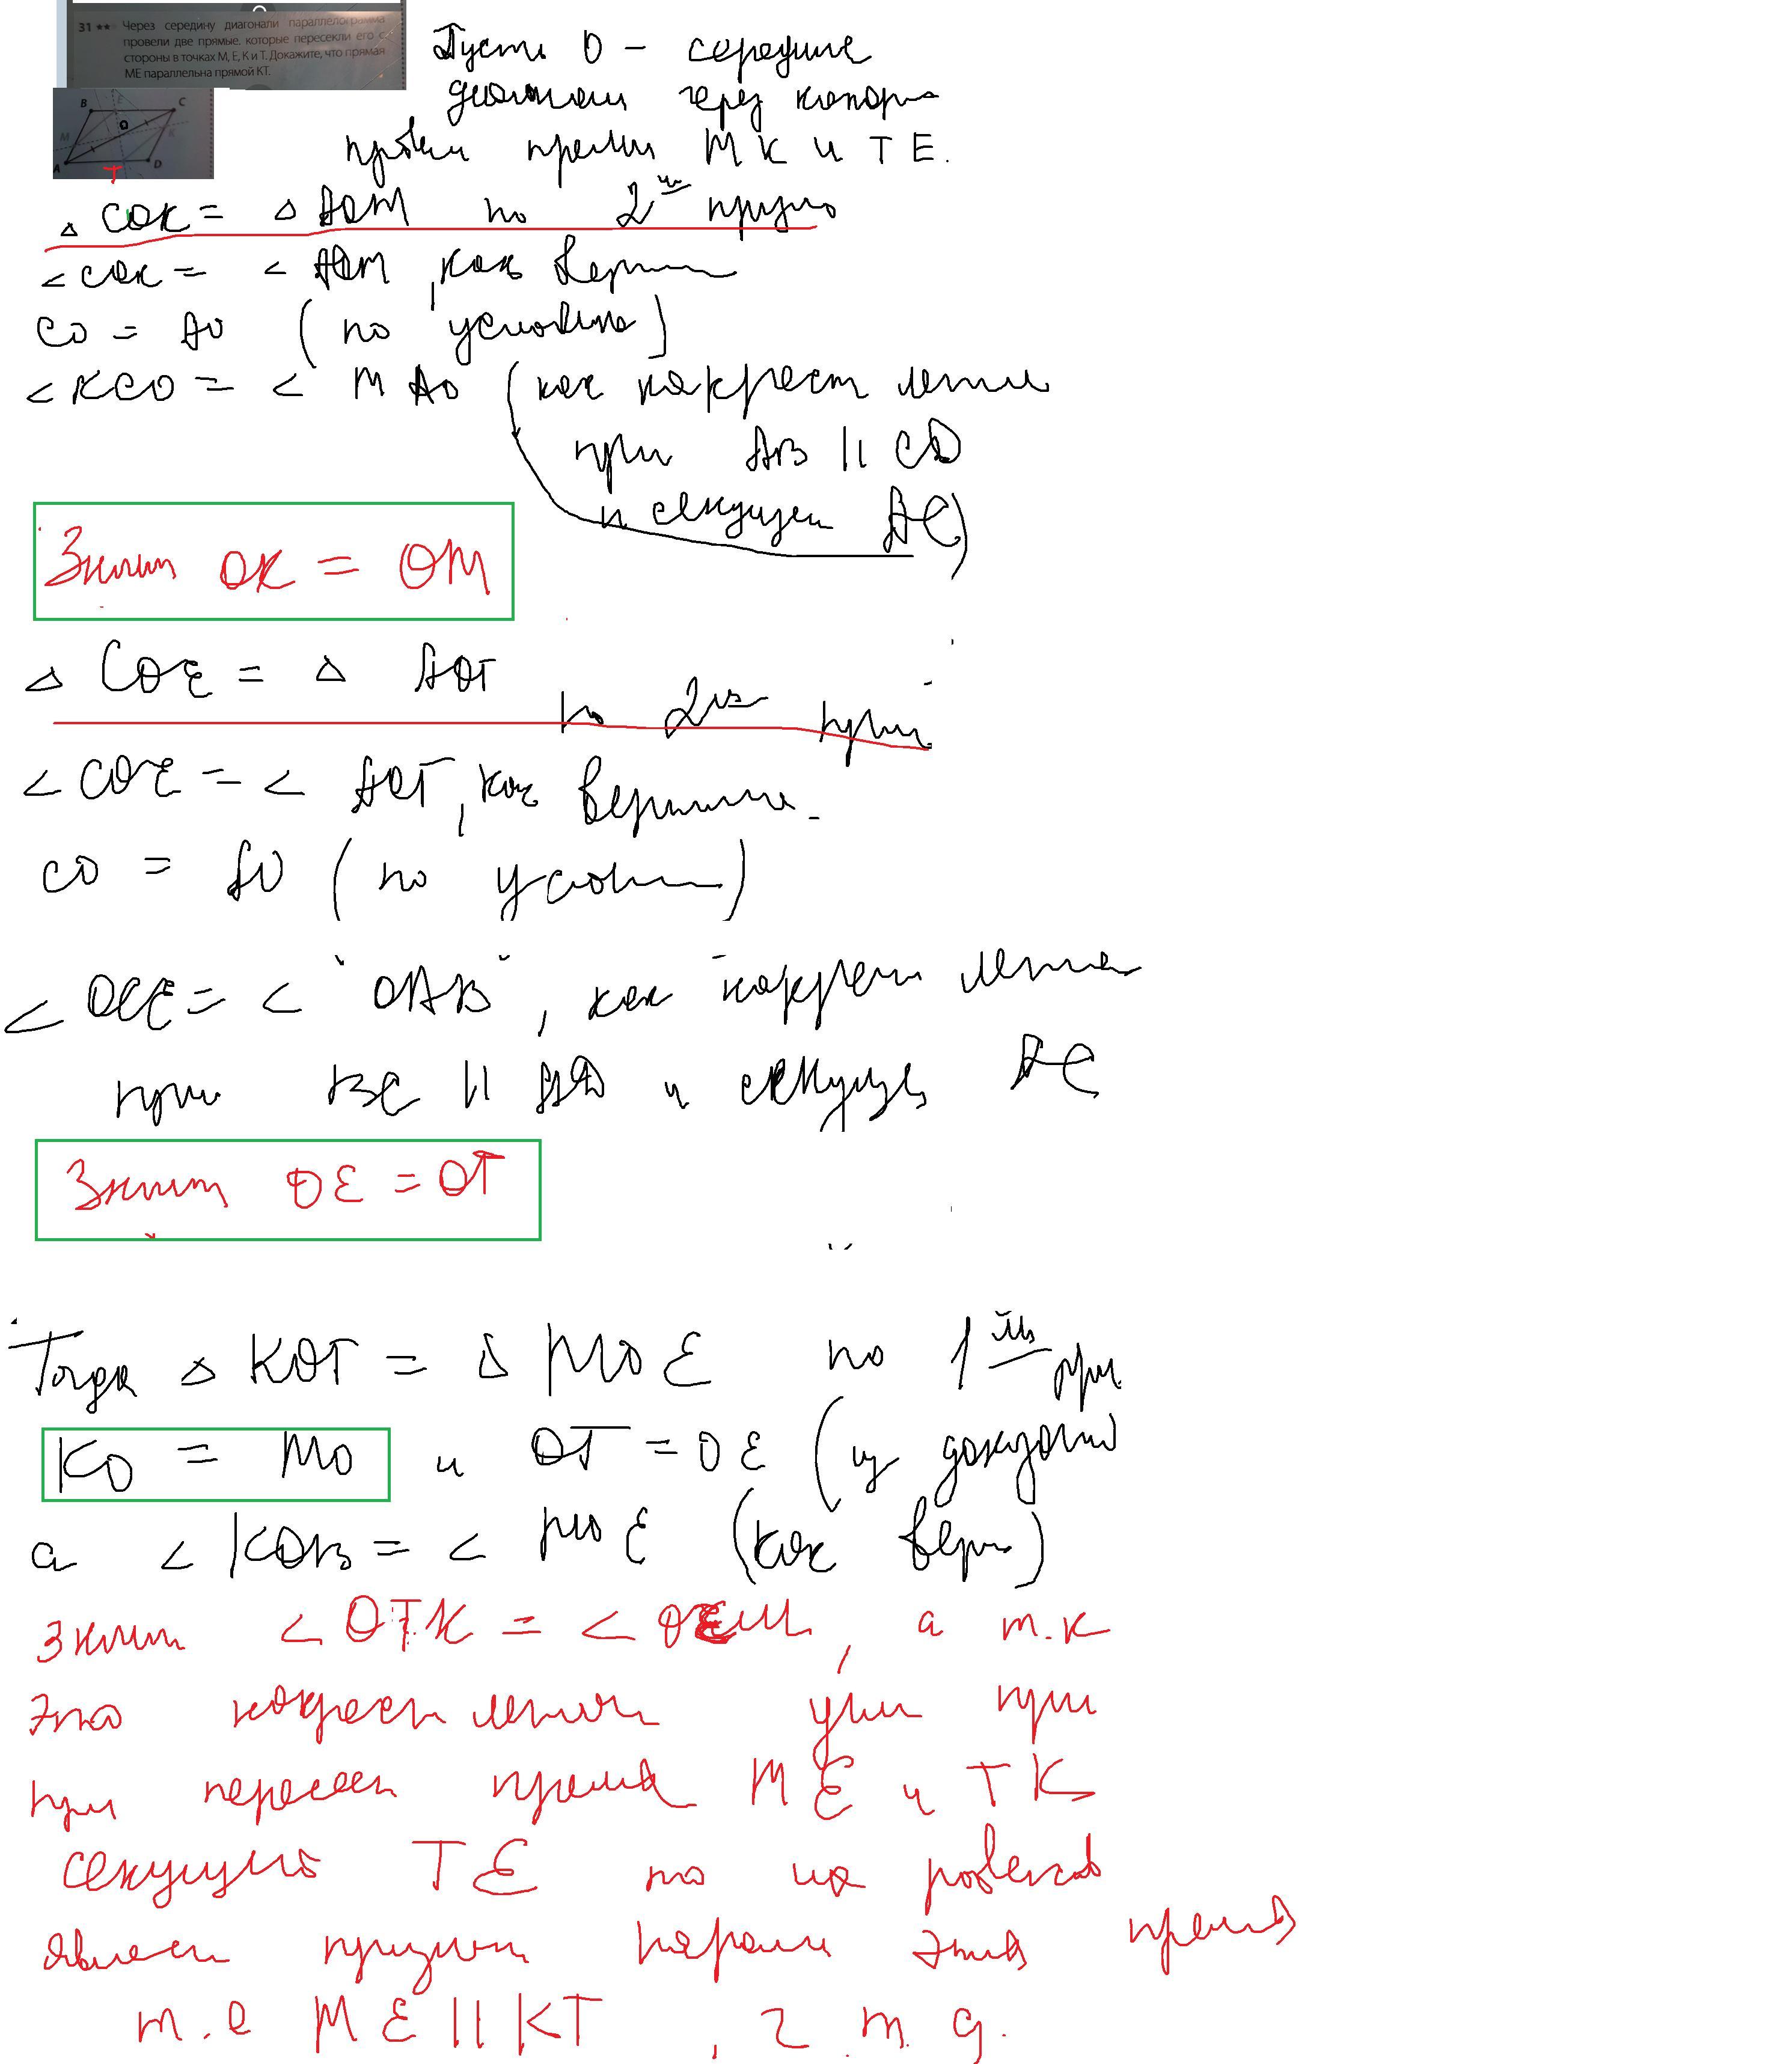 31 ★★ Через середину диагонали параллелограмма
провели две прямые, которые пересекли его с
стороны в точках M, E, K и T. Докажите, что прямая
ME параллельна прямой KT.
Пусть O - середина
диагонали через которую
провели прямые MK и TE.
B E C
O
M K
A D
T
△ COK = △ AOM по 2му признаку
< COK = < AOM, как верт
CO = AO (по условию)
< KCO = < MAO (как накрест лежащие
при AB || CD
и секущей AC)
Значит OK = OM
△ COE = △ AOT
по 2му приз
< COE = < AOT, как вертикальные.
CO = AO (по условию)
< OCE = < "OAB", как накрест лежащие
при BC || AD и секущей AC
Значит OE = OT
Тогда △ KOT = △ MOE по 1му при.
KO = MO и OT = OE (из доказанного
а < KOB = < MOE (как верт)
значит < OTK = < OEM, а т.к
это накрест лежащие углы при
при пересеч прямых ME и TK
секущей TE то их равенство
является признаком паралл этих прямых
т.е ME || KT, ч.т.д.